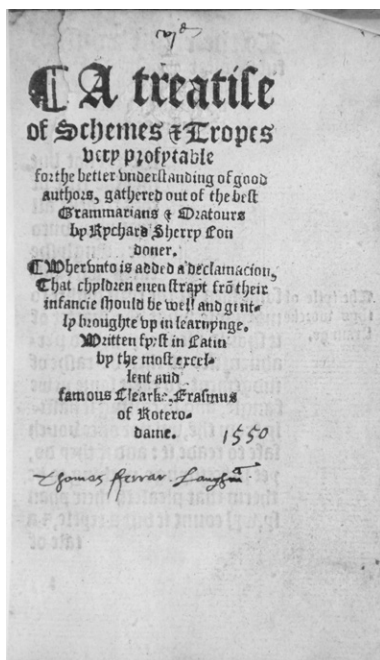 ¶ A treatise
of Schemes & Tropes
very profytable
for the better vnderstanding of good
authors, gathered out of the best
Grammarians & Oratours
by Rychard Sherry Lon
doner.
¶ Whervnto is added a declamacion,
That chyldren euen strapt frō their
infancie should be well and gent-
ly broughte vp in learnynge.
Written fyrst in Latin
by the most excel-
lent and
famous Clearke, Erasmus
of Rotero-
dame.
1550
Thomas